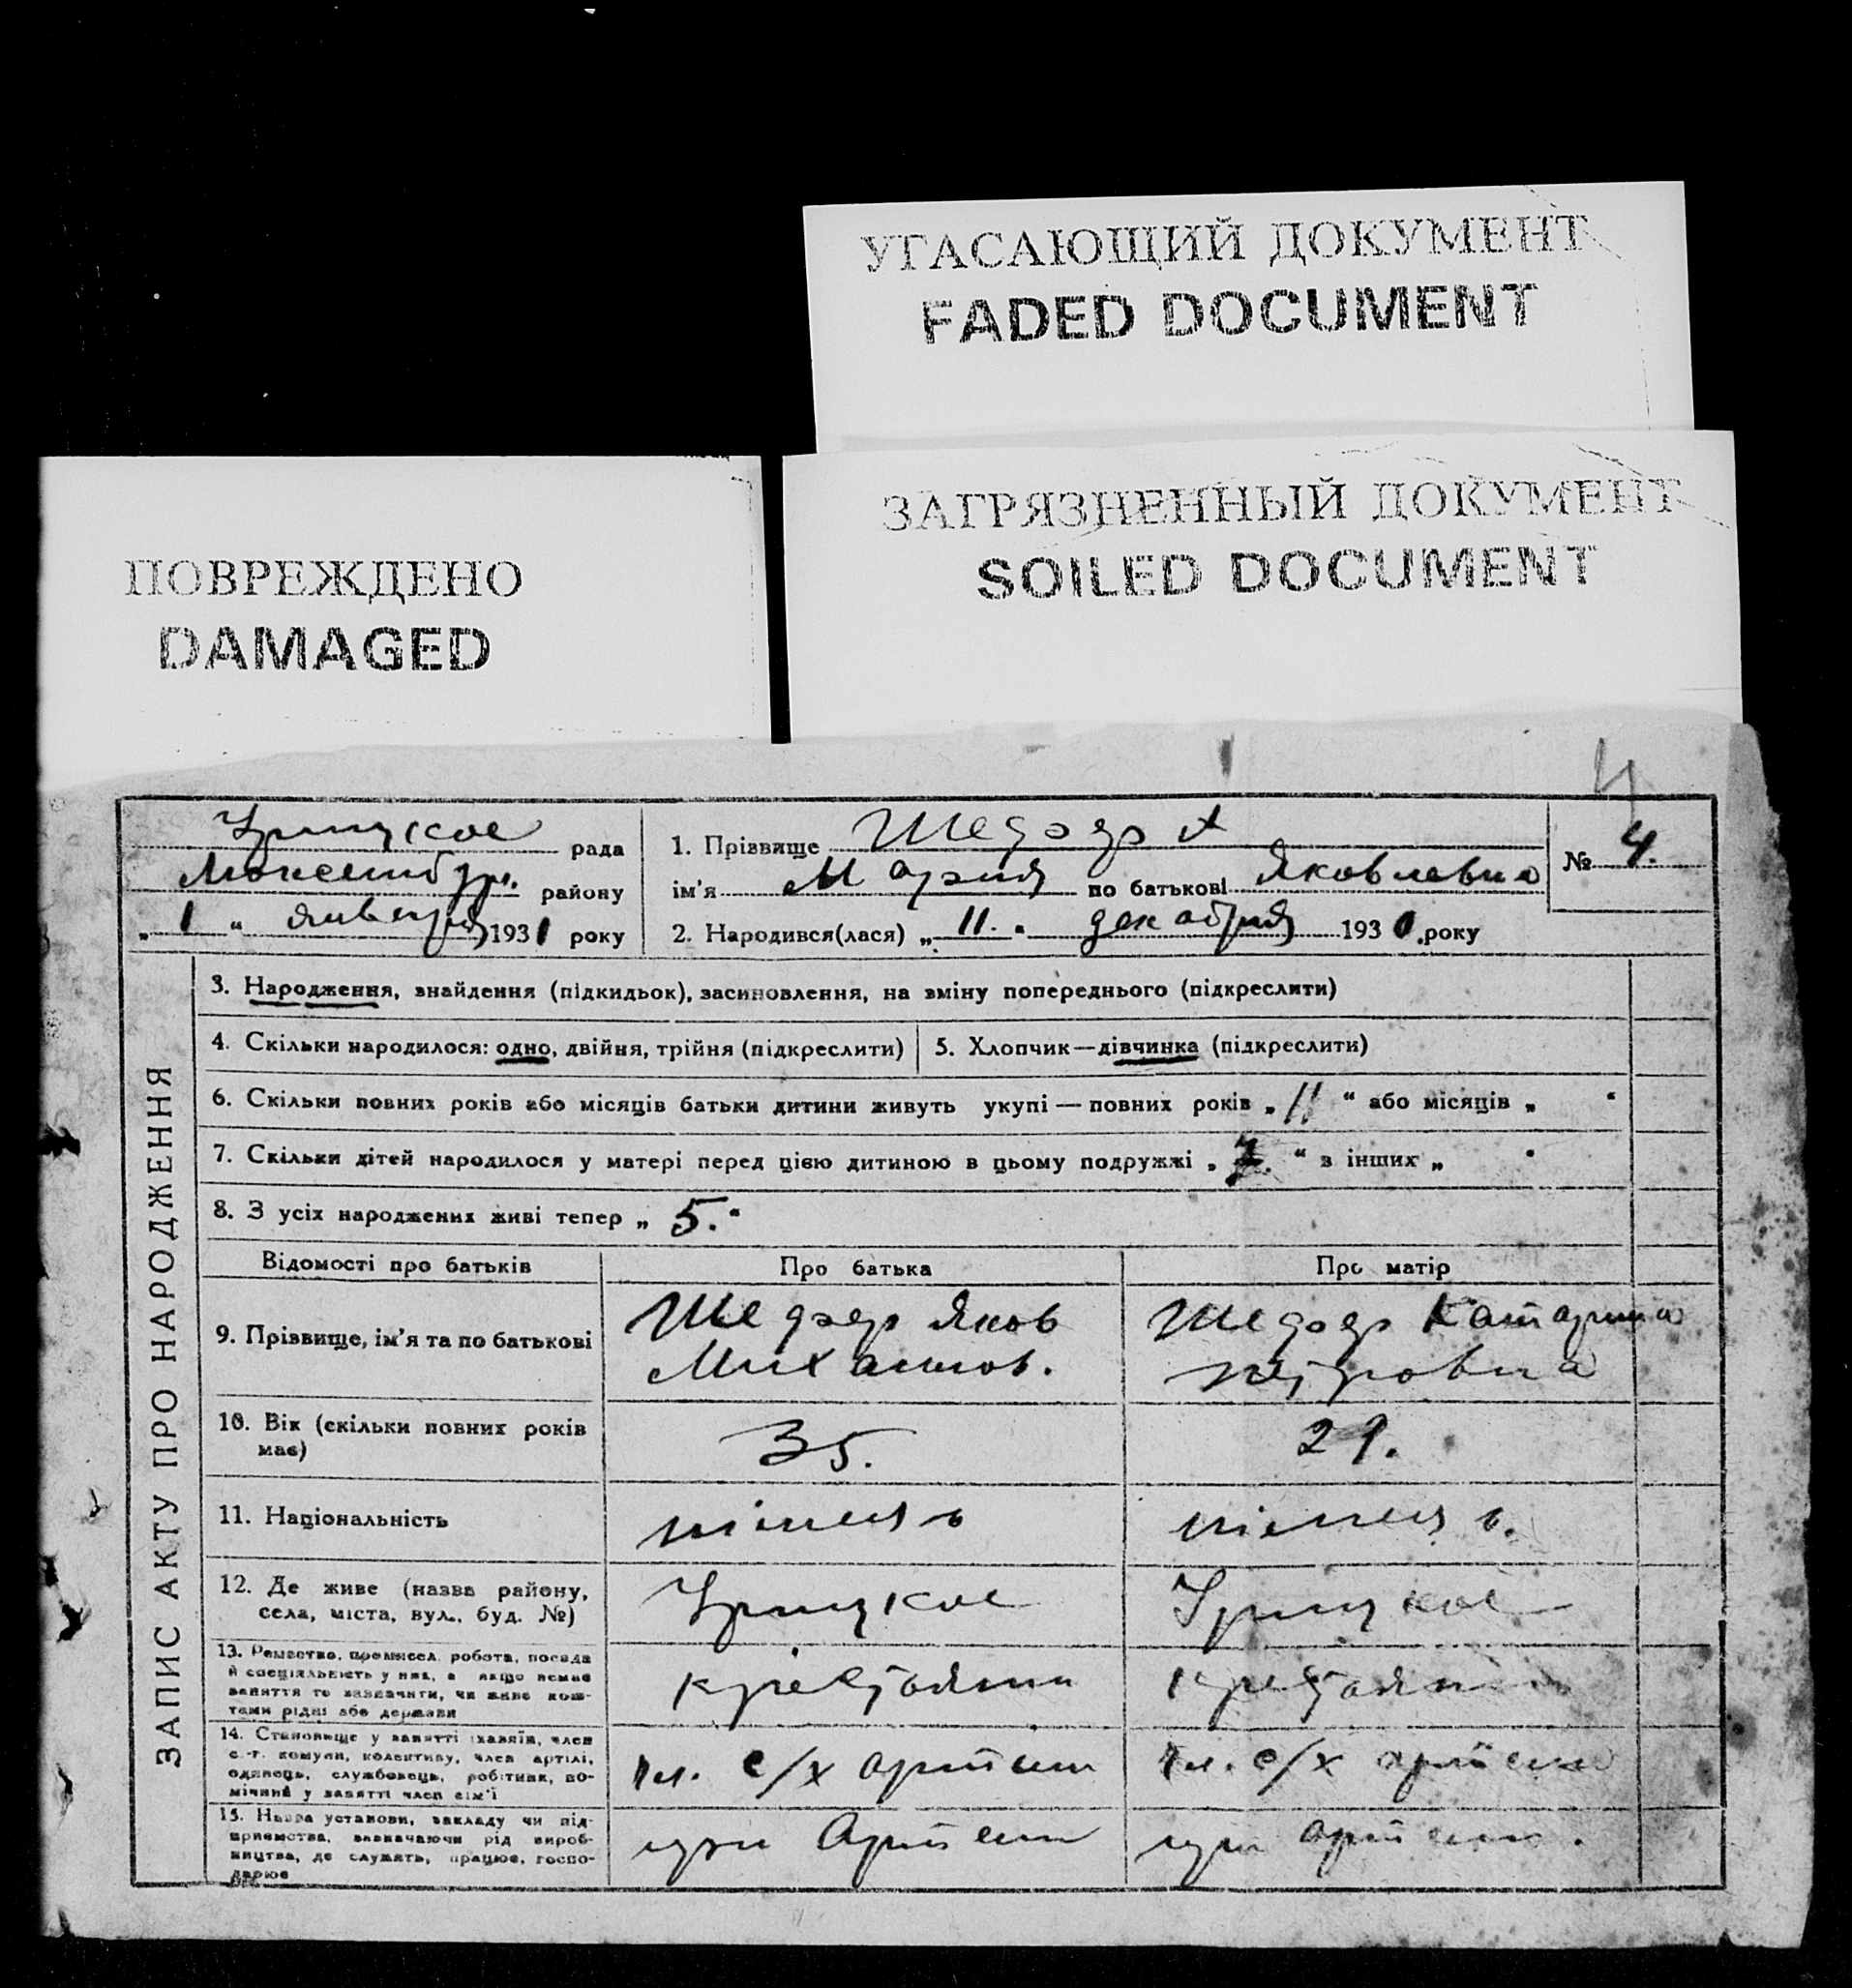 УГАСАЮЩИЙ ДОКУМЕНТ
FADED DOCUMENT
ЗАГРЯЗНЕННЫЙ ДОКУМЕНТ
SOILED DOCUMENT
ПОВРЕЖДЕНО
DAMAGED
4
Урицкое рада
района району
„ 1 “ января 1931 року
1. Прізвище
ім'я Мария по батькові Яковлевна
№ 4.
2. Народився(лася) „ 11. “ декабря 1930 року
ЗАПИС АКТУ ПРО НАРОДЖЕННЯ
3. Народження, знайдення (підкидьок), засиновлення, на зміну попереднього (підкреслити)
4. Скільки народилося: одно, двійня, трійня (підкреслити)
5. Хлопчик—дівчинка (підкреслити)
6. Скільки повних років або місяців батьки дитини живуть укупі — повних років „ 11 “ або місяців „ “
7. Скільки дітей народилося у матері перед цією дитиною в цьому подружжі „ 7. “ з інших „ “
8. З усіх народжених живі тепер „ 5. “
Відомості про батьків
Про батька
Про матір
9. Прізвище, ім'я та по батькові
Яков
Михайлов.
Катарина
Петровна
10. Вік (скільки повних років
має)
35.
29.
11. Національність
12. Де живе (назва району,
села, міста, вул., буд. №)
Урицкое
Урицкое
13. Ремество, промисел, робота, посада
й спеціяльність у них, а якщо немає
заняття то зазначити, чи живе кош-
тами рідні або держави
14. Становище у занятті (хазяїн, член
с.-г. комуни, колективу, член артілі,
одинець, службовець, робітник, по-
мічний у занятті член сім'ї
чл. с/х артели
чл. с/х артели
15. Назва установи, закладу чи під-
приємства, зазначаючи рід вироб-
ництва, де служать, працює, госпо-
дарює
при Артели
при артели.